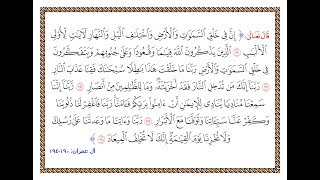 قَالَ تَعَالَىٰ: ﴿ إِنَّ فِي خَلْقِ السَّمَٰوَٰتِ وَالْأَرْضِ وَاخْتِلَٰفِ الَّيْلِ وَالنَّهَارِ لَءَايَٰتٍ لِّأُو۟لِي
الْأَلْبَٰبِ ۝ الَّذِينَ يَذْكُرُونَ اللَّهَ قِيَٰمًا وَقُعُودًا وَعَلَىٰ جُنُوبِهِمْ وَيَتَفَكَّرُونَ
فِي خَلْقِ السَّمَٰوَٰتِ وَالْأَرْضِ رَبَّنَا مَا خَلَقْتَ هَٰذَا بَٰطِلًا سُبْحَٰنَكَ فَقِنَا عَذَابَ النَّارِ
۝ رَبَّنَا إِنَّكَ مَن تُدْخِلِ النَّارَ فَقَدْ أَخْزَيْتَهُۥ وَمَا لِلظَّٰلِمِينَ مِنْ أَنصَارٍ ۝ رَّبَّنَا إِنَّنَا
سَمِعْنَا مُنَادِيًا يُنَادِي لِلْإِيمَٰنِ أَنْ ءَامِنُوا۟ بِرَبِّكُمْ فَـَٔامَنَّا رَبَّنَا فَاغْفِرْ لَنَا ذُنُوبَنَا
وَكَفِّرْ عَنَّا سَيِّـَٔاتِنَا وَتَوَفَّنَا مَعَ الْأَبْرَارِ ۝ رَبَّنَا وَءَاتِنَا مَا وَعَدتَّنَا عَلَىٰ رُسُلِكَ
وَلَا تُخْزِنَا يَوْمَ الْقِيَٰمَةِ إِنَّكَ لَا تُخْلِفُ الْمِيعَادَ ۝ ﴾
آل عمران: ١٩٠-١٩٤